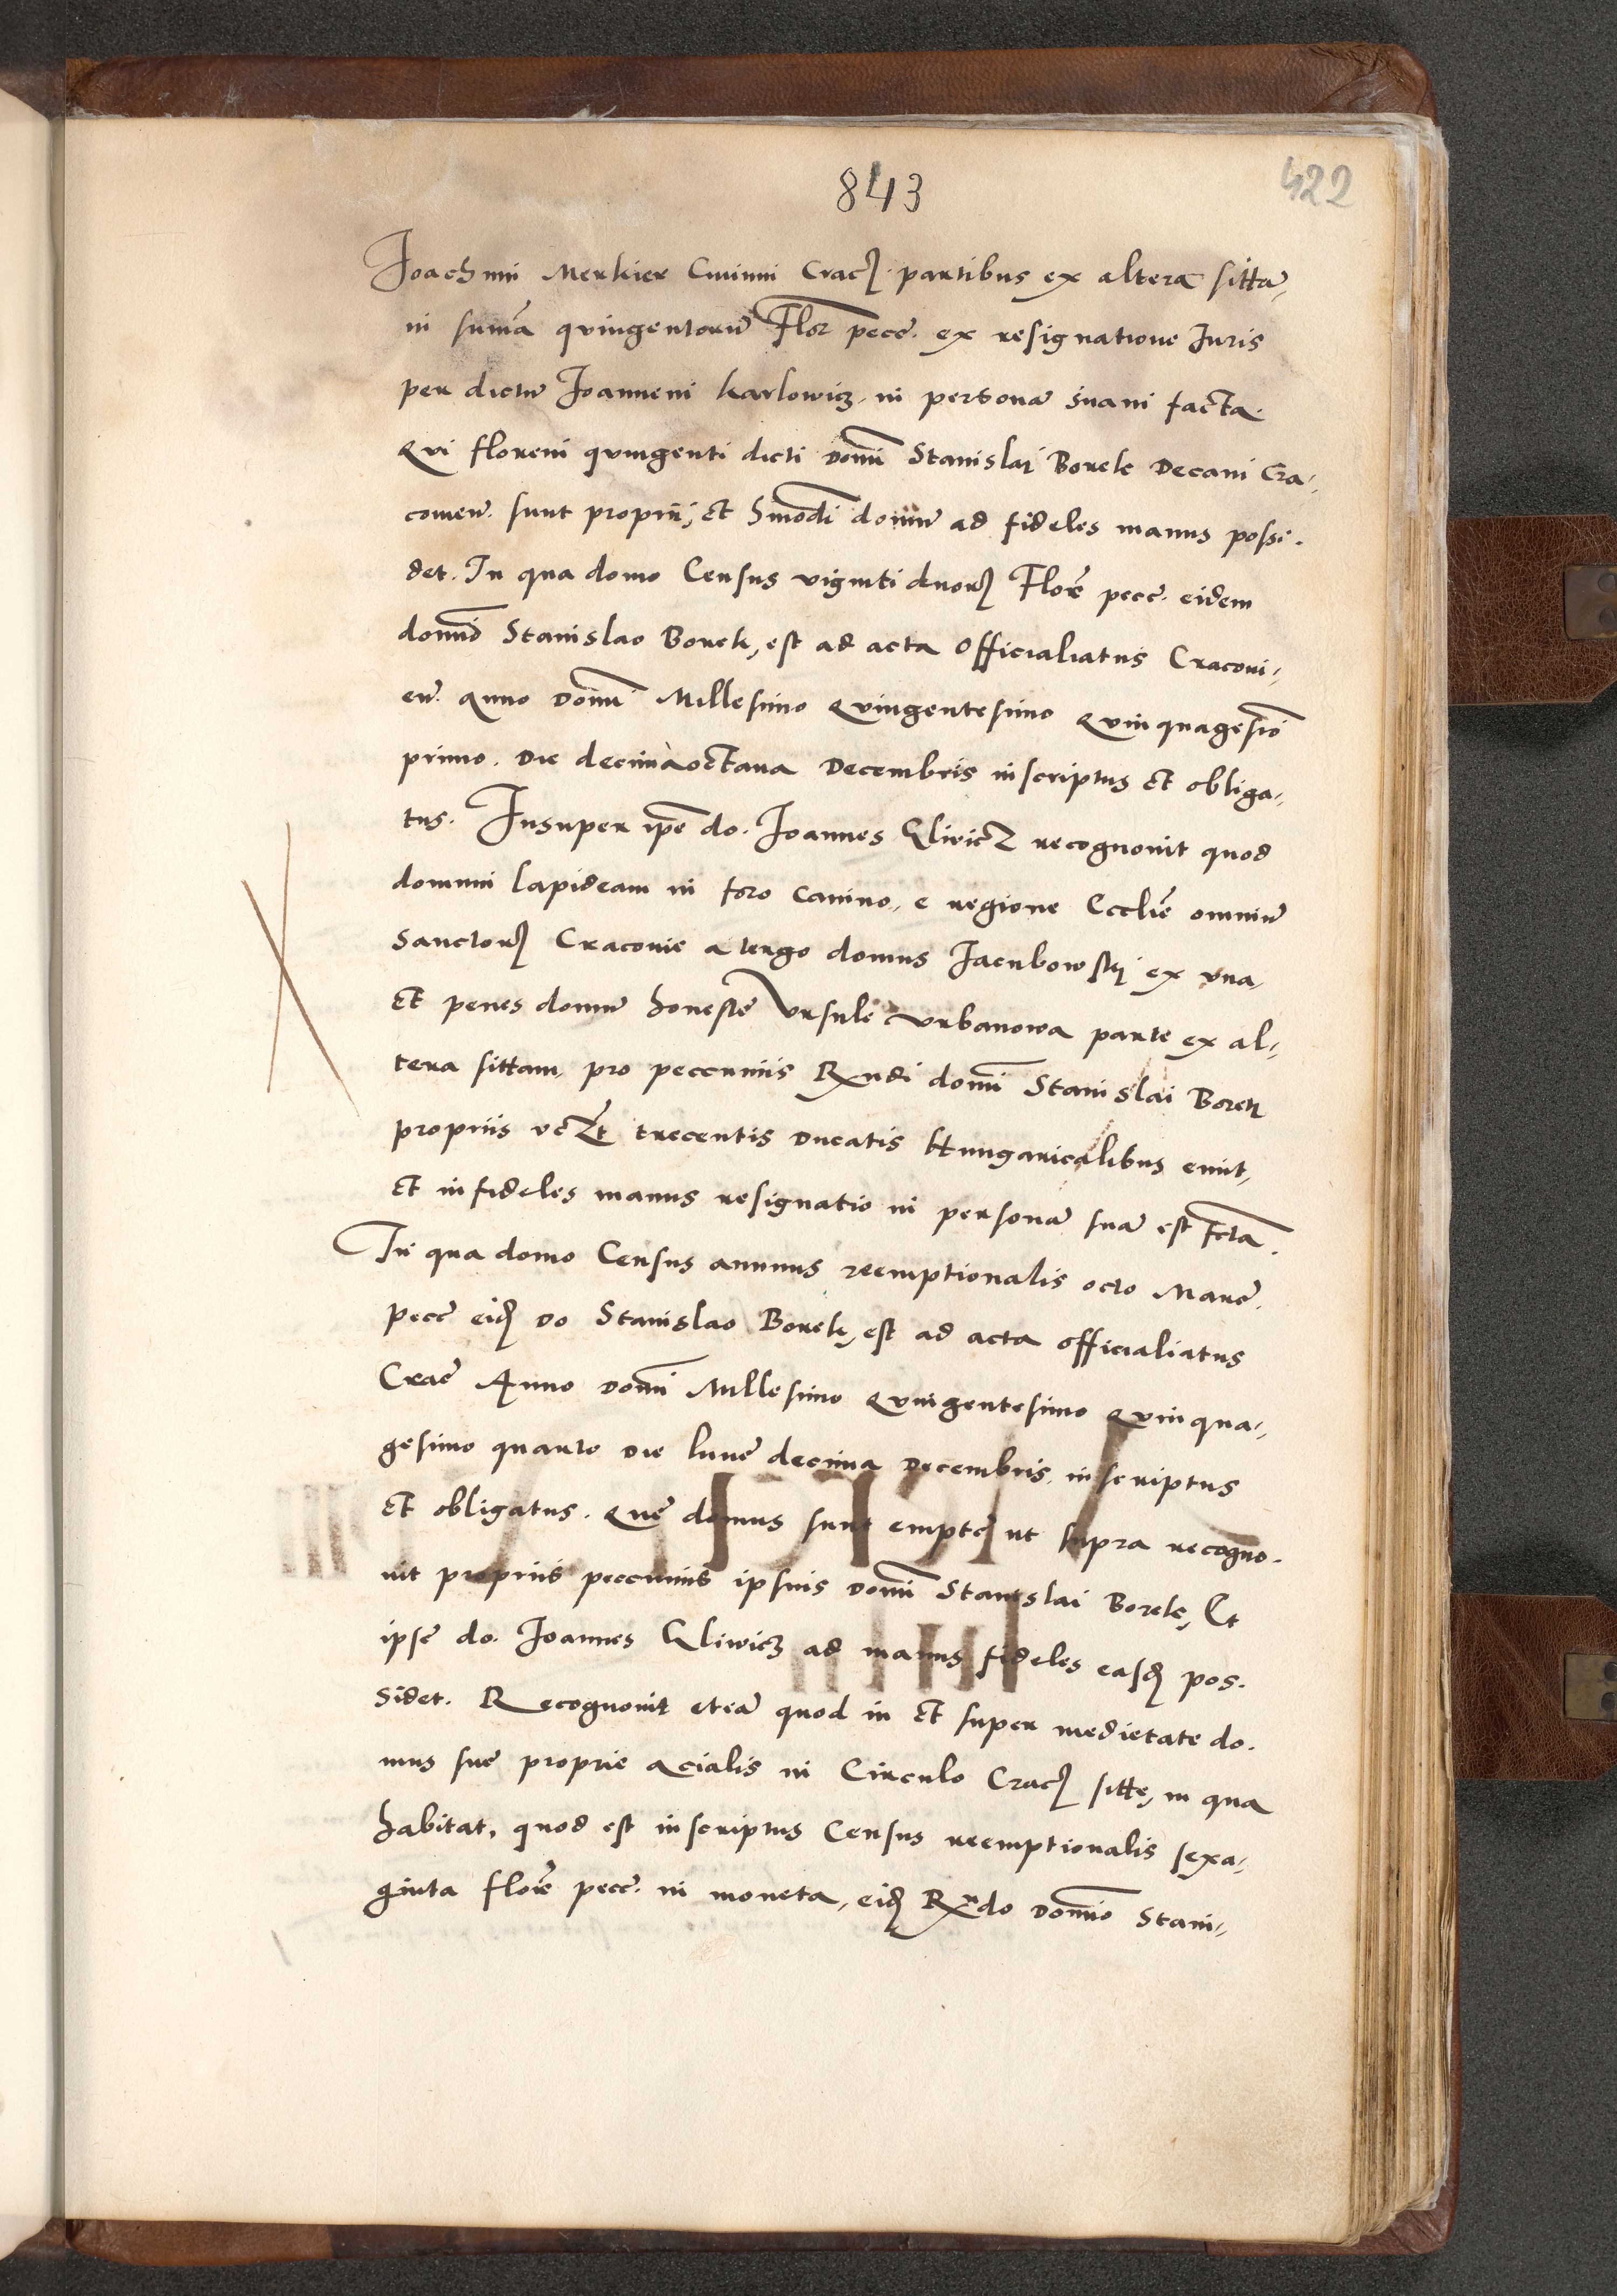 843
422
Joachimi Merkier Civium Crac. partibus ex altera sittā,
in sumā qvingentorū Flor pecc. ex resignatione Iuris
per dictū Joannem Karlowicz in personā suam facta.
Qvi floreni qvingenti dicti Domi Stanislai Borek Decani Cra,,
couień. sunt proprii, et hmodi domū ad fideles manus possi.
det. In qua domo Census viginti duor Flore pecc. eidem
domino Stanislao Borek, est ad acta Officialiatus Cracovi,,
eń. Anno Domi Millesimo Qvingentesimo Qvinquagesio
primo. Die decimaoctaua Decembris inscriptus et obliga,,
tus. Insuper ipe do. Joannes Gliwicz recognouit quod
domum lapideam in foro canino, e regione Ecclie omniū
Sanctor Cracovie a tergo domus Jacubowski ex vna,
et penes domū honeste Vrsule Vrbanowa parte ex al,,
tera sittam, pro peccuniis Rndi domi Stanislai Borek
propriis vczt trecentis Ducatis Hungaricalibus emit,
et in fideles manus resignatio in personā suā est fcta.
In qua domo Census annuus reemptionalis octo Marc.
pecc eid Do Stanislao Borek, est ad acta officialiatus
Crac Anno Domi Millesimo Qvingentesimo Qvinqua,,
gesimo quarto Die lune decima Decembris, inscriptus
et obligatus. Que domus sunt empte ut supra recogno.
uit propriis peccuniis ipsius Domi Stanislai Borek, Et
ipse do. Joannes Gliwicz ad manus fideles easd pos.
sidet. Recognouit etiā quod in et super medietate do.
mus sue proprie acialis in Circulo Crac sitte, in qua
habitat, quod est inscriptus Census reemptionalis sexa,,
ginta flore pecc. in moneta, eid Rndo Domino Stani,,